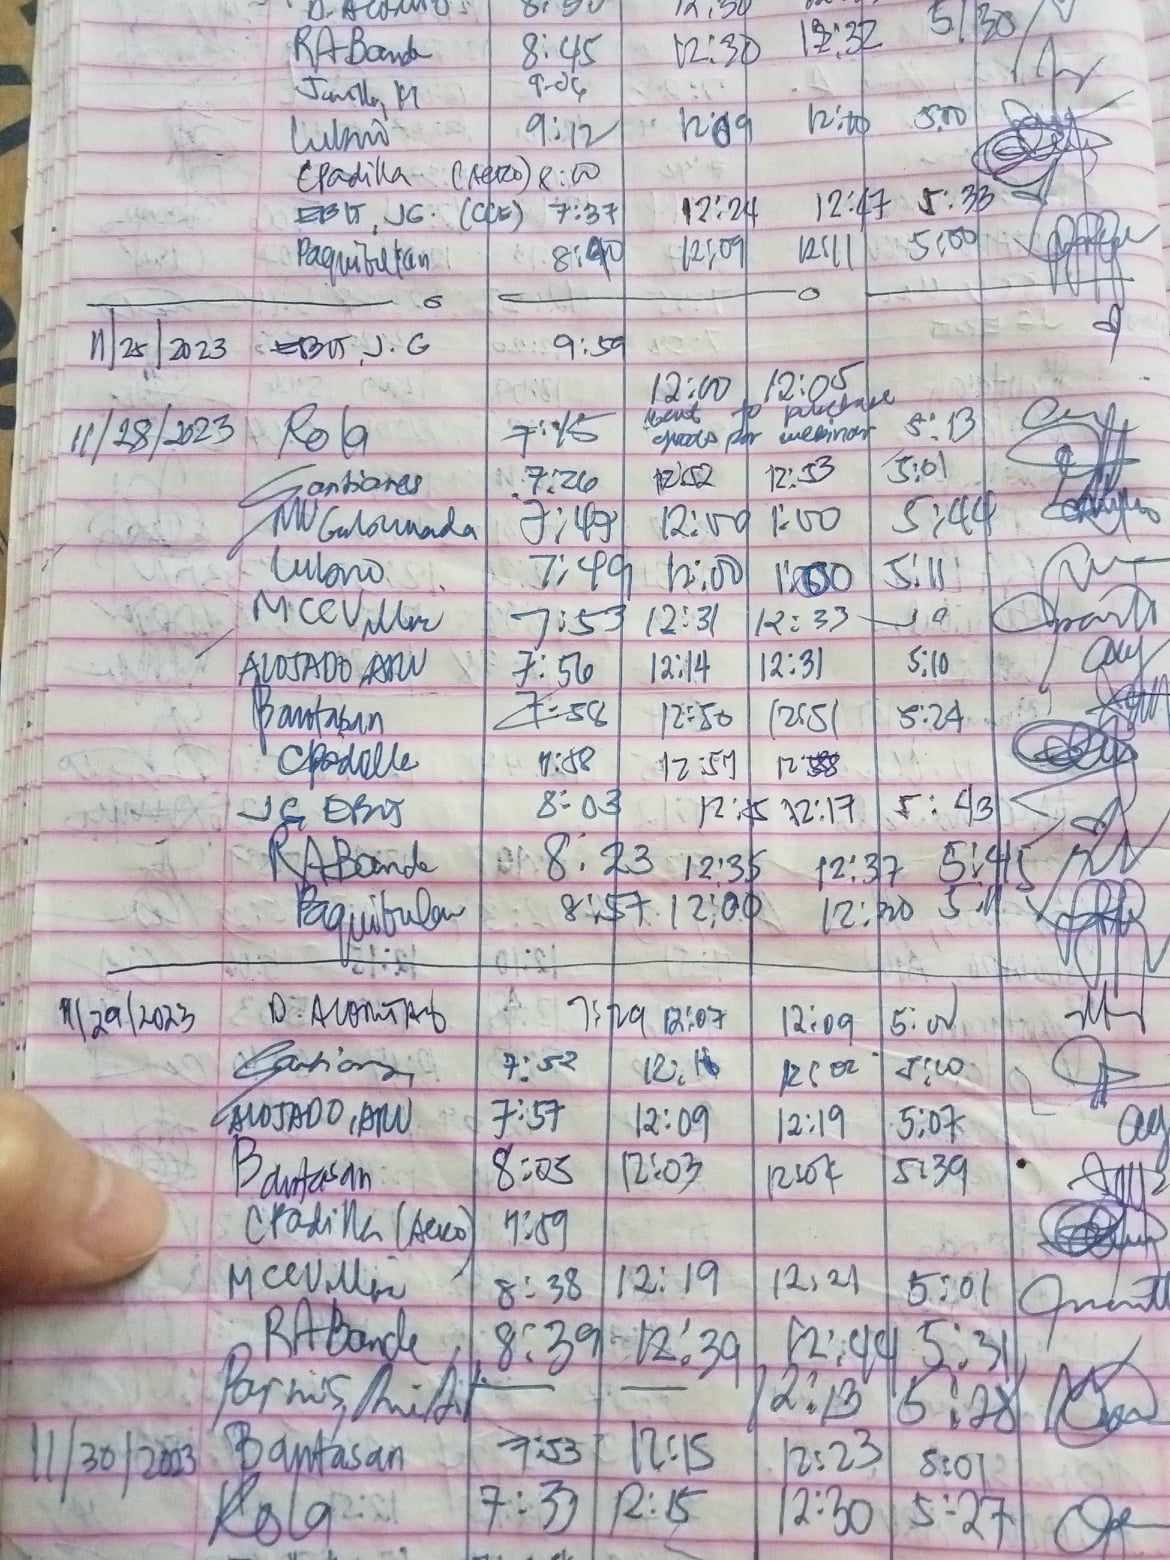 RABande 8:45 12:30 12:32 5/30
9:06
Lulano 9:12 12:09 12:10 5:00
CPadilla (Aero) 8:00
EBIT, JG. (CCE) 7:37 12:24 12:47 5:33
Paquibulan 8:00 12:09 12:11 5:00
11/25/2023 EBIT, J.G 9:59
12:00 12:05
went to purchase
11/28/2023 Rola 7:45 goods for webinar 5:13
Santianes 7:26 12:52 12:53 5:01
MV 7:49 12:00 1:00 5:44
Lulano 7:49 12:00 1:00 5:11
MCCVillar 7:53 12:31 12:33
ALOJADO, ANV 7:56 12:14 12:31 5:10
Bantasan 7:58 12:50 12:51 5:24
CPadilla 7:58 12:57 12:58
JG EBIT 8:03 12:15 12:17 5:43
RABande 8:23 12:35 12:37 5:45
Paquibulan 8:57 12:00 5:11
11/29/2023 D. 7:29 12:07 12:09 5:00
7:52
ALOJADO, ANV 7:57 12:09 12:19 5:07
Bantasan 8:05 12:03 12:04 5:39
CPadilla (Aero) 7:59
MCCVillar 8:38 12:19 12:21 5:01
RABande 8:39 12:39 12:44 5:31
— — 12:13 5:28
11/30/2023 Bantasan 7:53 12:15 12:23 5:01
Rola 7:33 12:15 12:30 5:27